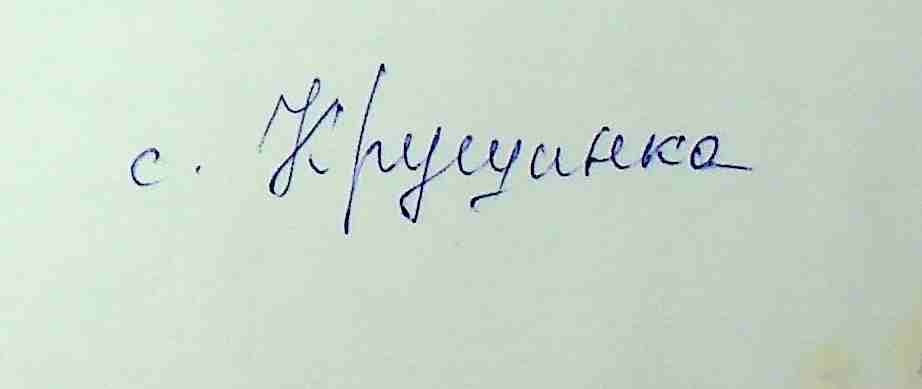 с. Крущинка